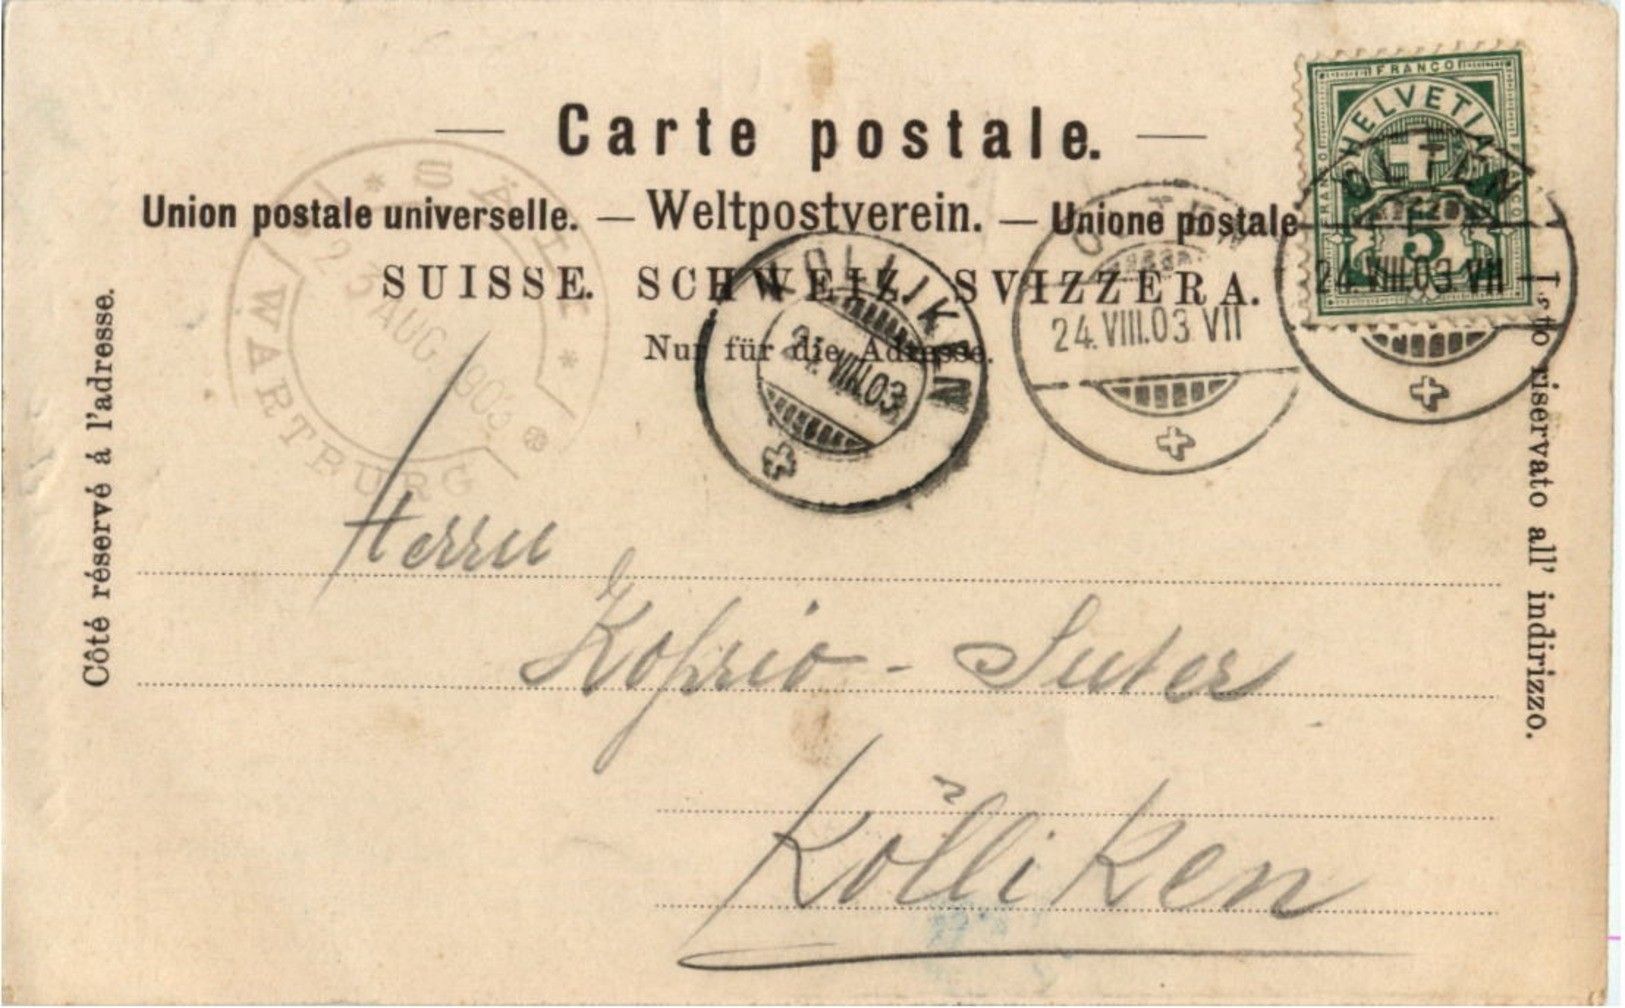 FRANCO
HELVETIA
FRANCO
FRANCO
5
— Carte postale. —
Union postale universelle. — Weltpostverein. — Unione postale
SUISSE. SCHWEIZ. SVIZZERA.
Nur für die Adresse.
Côté réservé á l'adresse.
riservato all' indirizzo.
* SÄLI *
WARTBURG
23 AUG. 1903
KÖLLIKEN
24.VIII.03
OLTEN
24.VIII.03 VII
OLTEN
24.VIII.03 VII
Herrn
Koprio - Suter
Kölliken